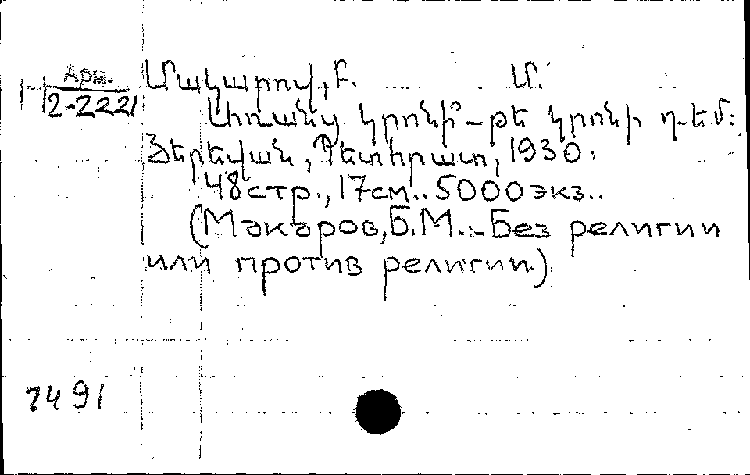 Арм.
1-1
2-2221
Մակարով, Բ. Մ.
Առանց կրոնի՞ - թե կրոնի դեմ:
Յերեվան, Պետհրատ, 1930.
48стр., 17см.. 5000экз..
(Макаров, Б.М.. - Без религии
или против религии.)
7491